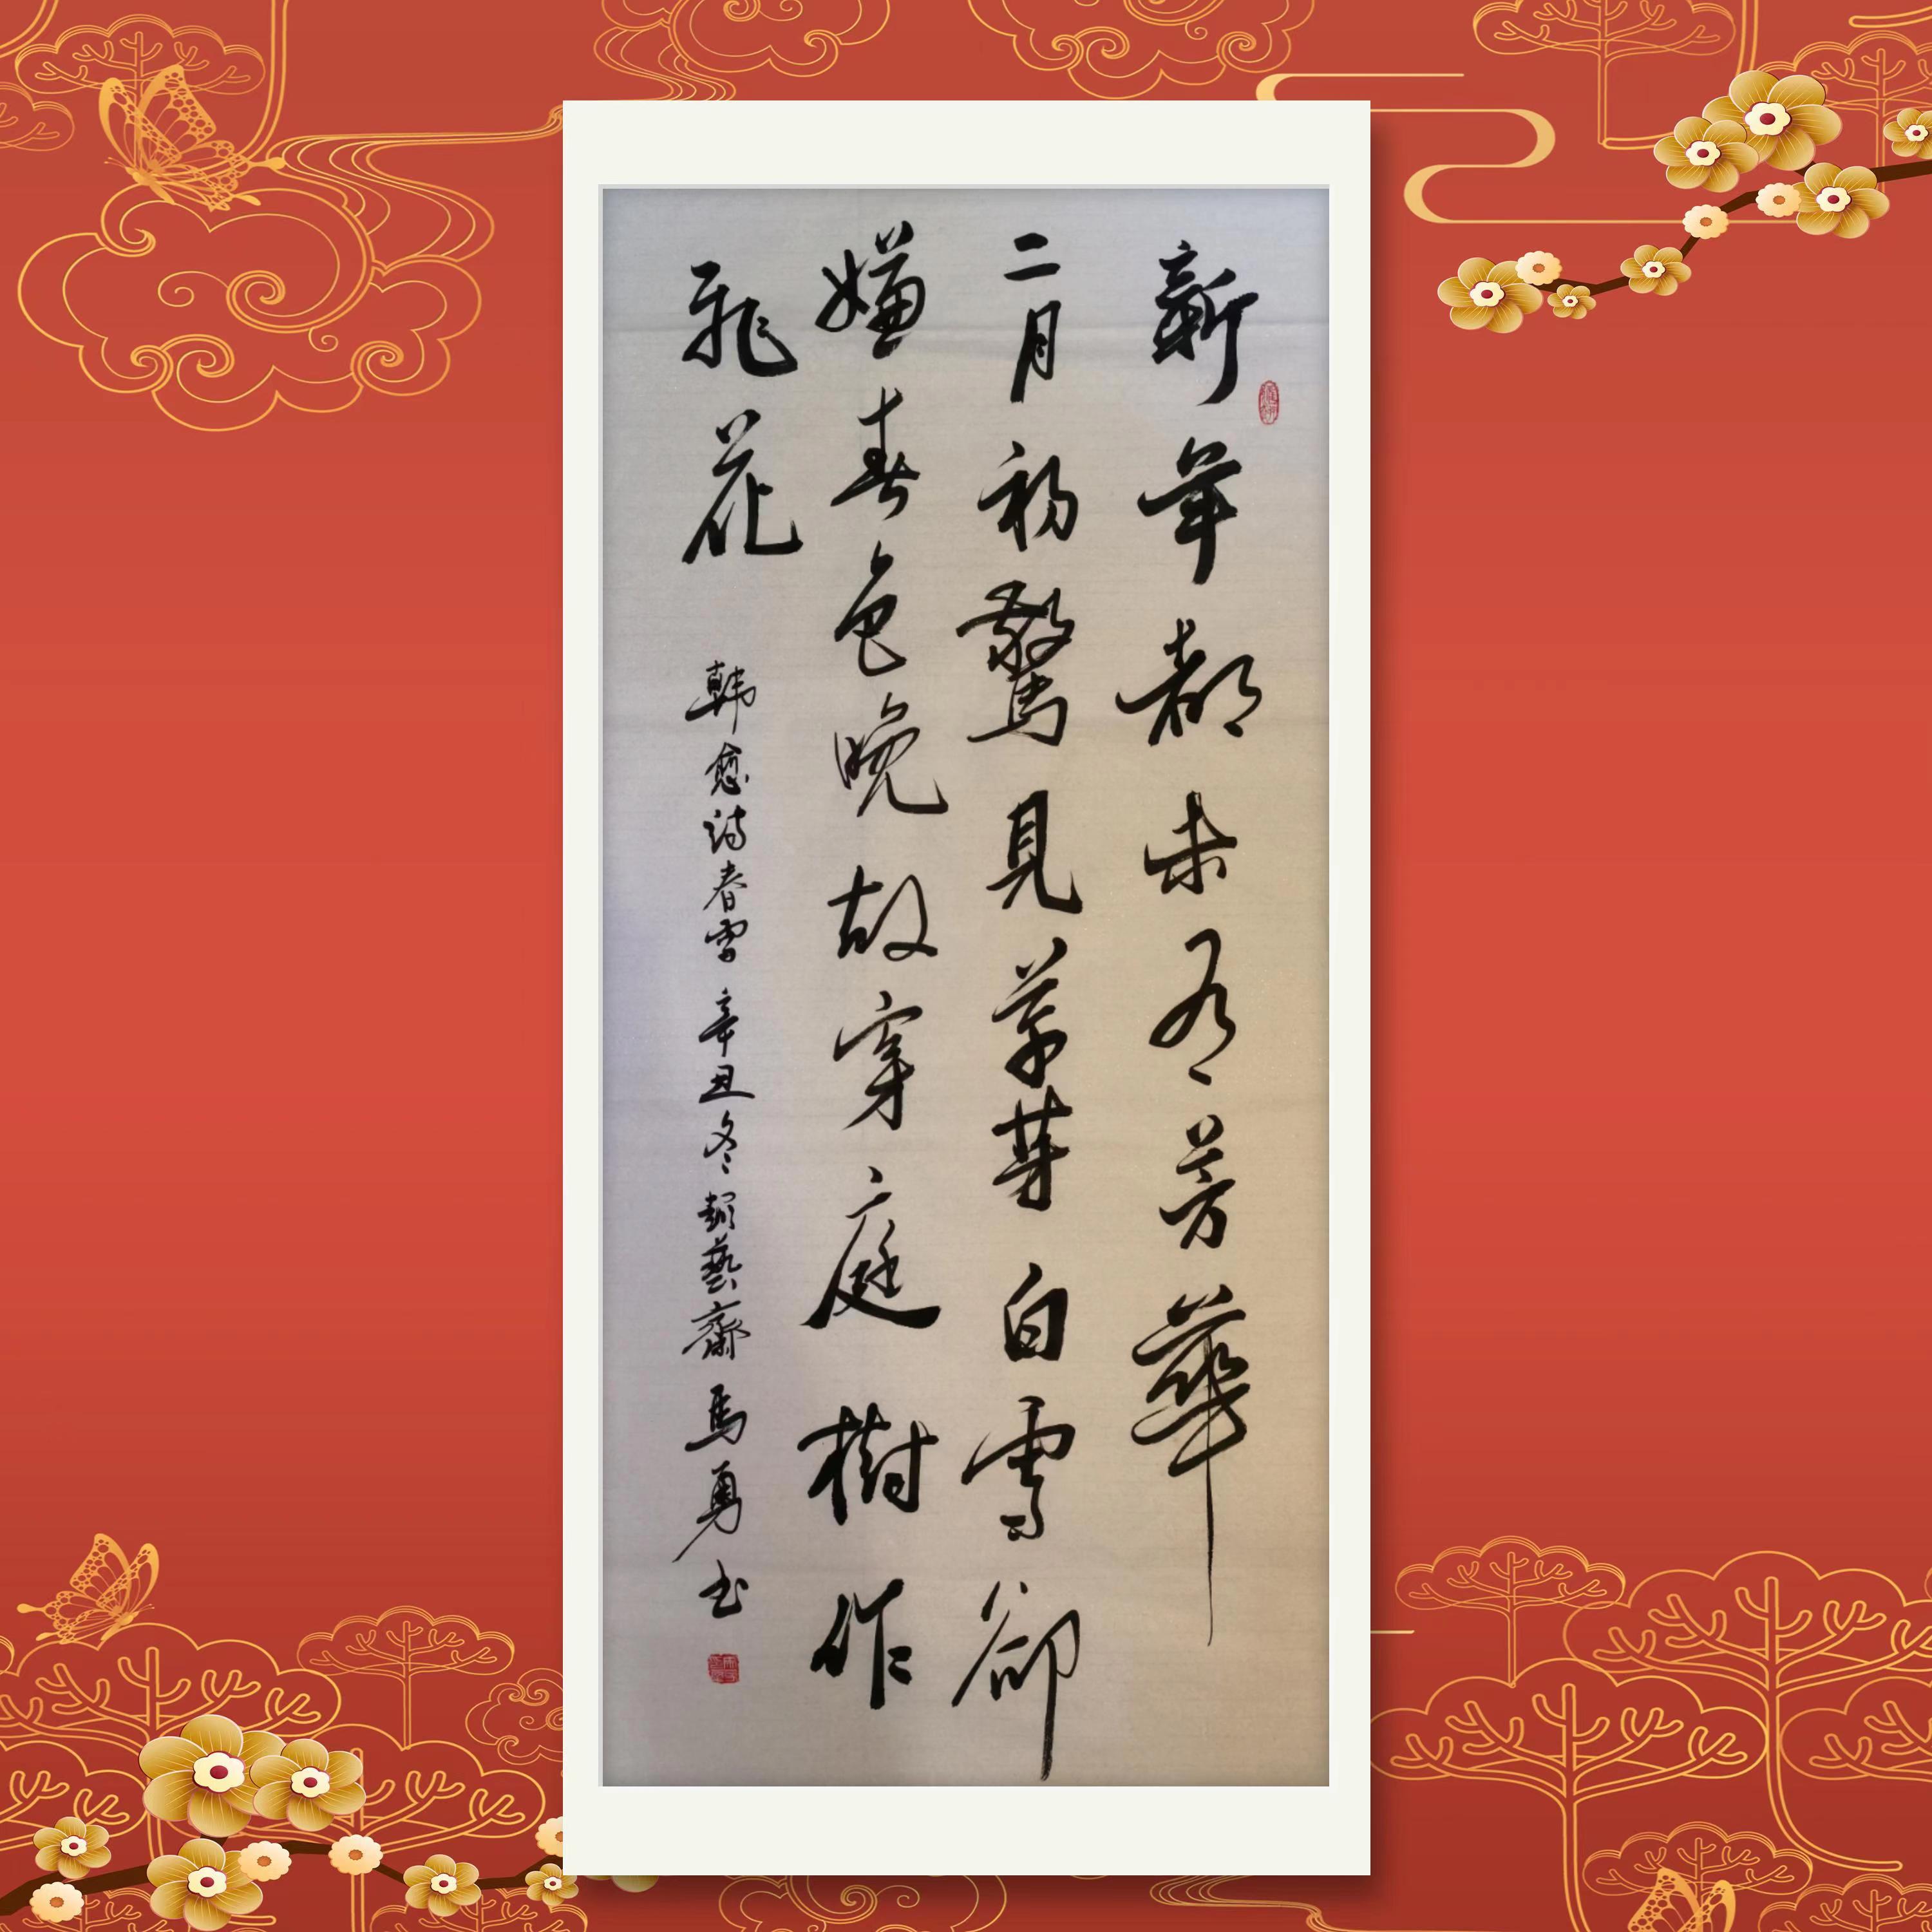 新年都未有芳華
二月初驚見草芽白雪卻
嫌春色晚故穿庭樹作
飛花
韩愈诗春雪 辛丑冬 藝齋 馬勇书